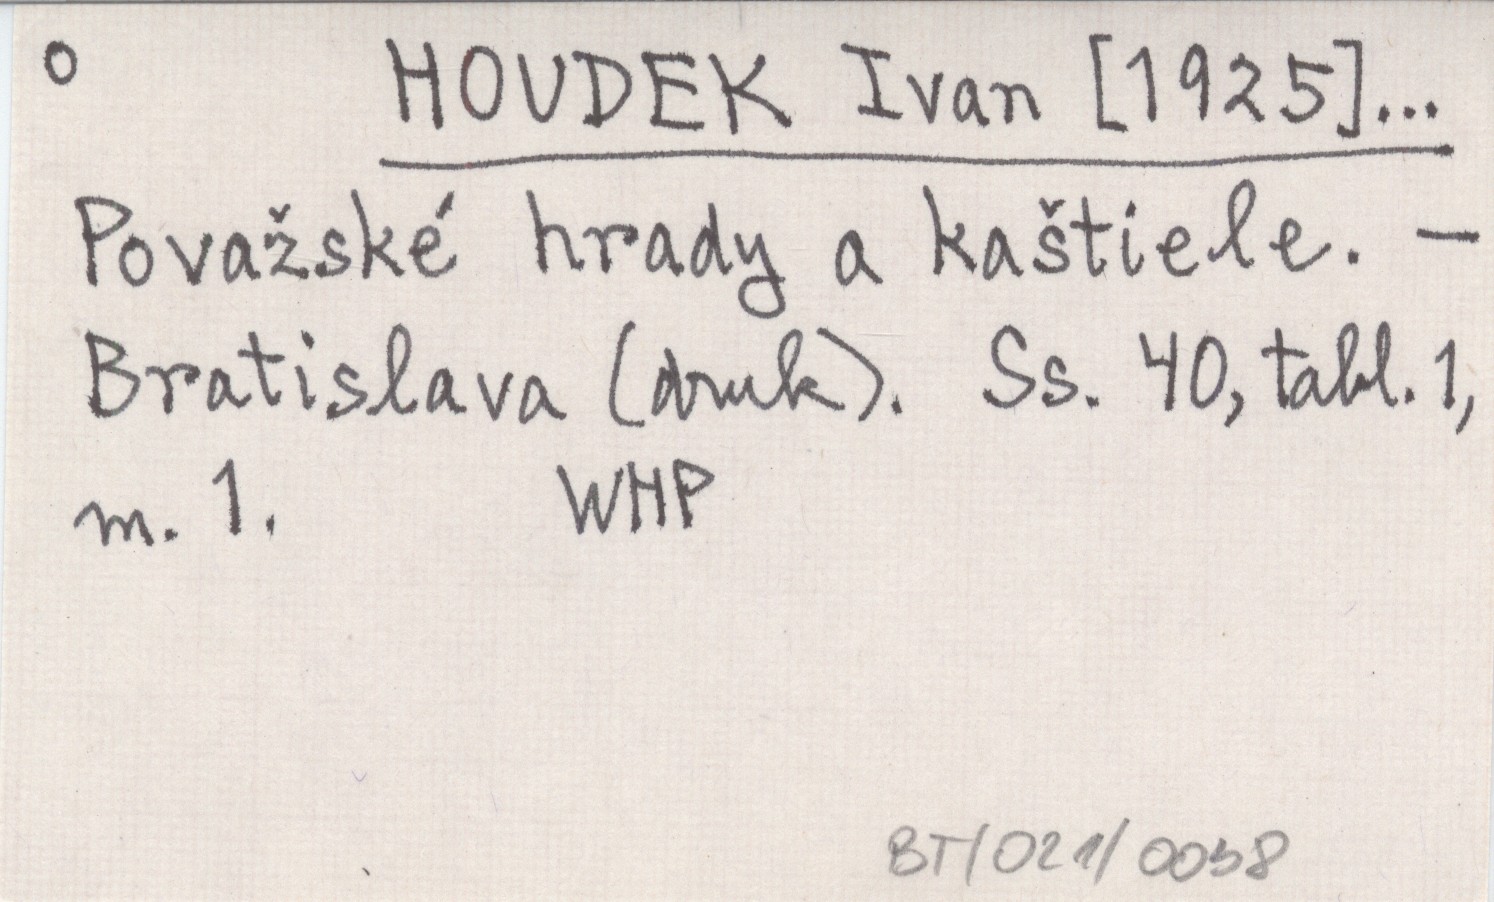 o HOUDEK Ivan [1925]...
Považské hrady a kaštiele. –
Bratislava (druk). Ss. 40, tabl. 1,
m. 1. WHP
BT/021/0058